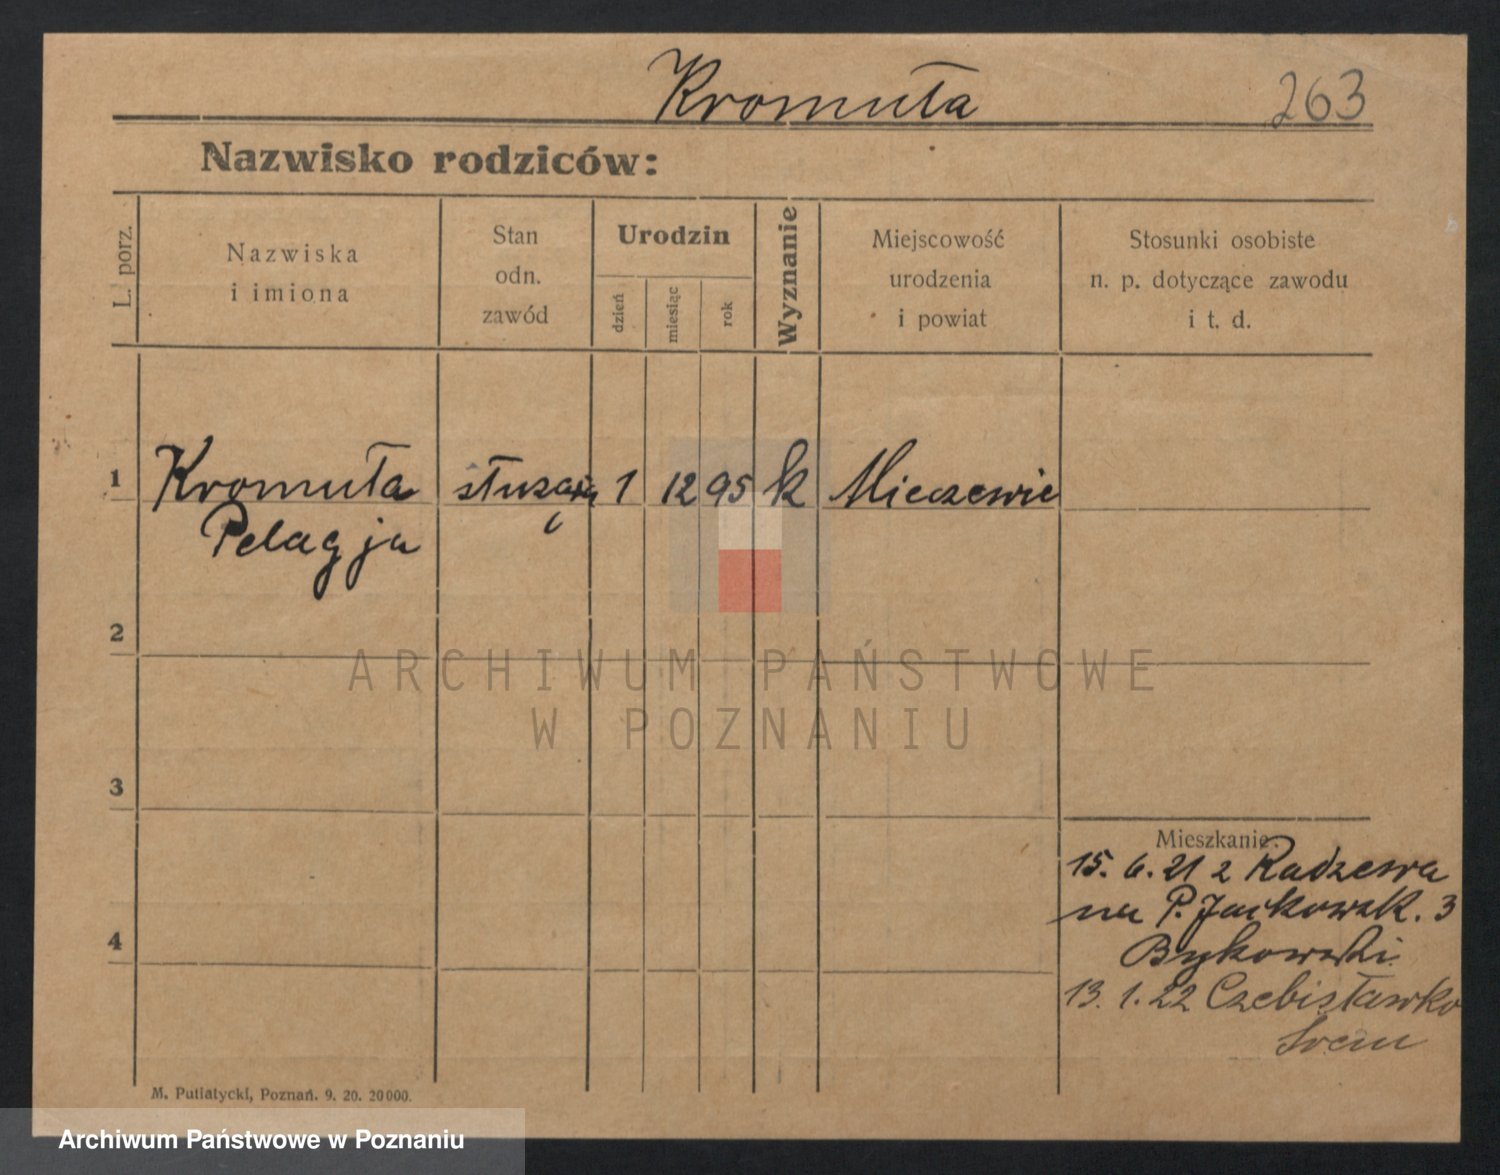 Kromuła 263
Nazwisko rodziców:
L. porz.
Nazwiska
i imiona
Stan
odn.
zawód
Urodzin
dzień
miesiąc
rok
Wyznanie
Miejscowość
urodzenia
i powiat
Stosunki osobiste
n. p. dotyczące zawodu
i t. d.
1 Kromuła służąca 1 12 95 k Mieczewie
Pelagja
2
3
4
Mieszkanie.
15. 6. 21 z Radzewa
na P. Jackowsk. 3
Bykowski
13. 1. 22
Śrem
M. Putiatycki, Poznań. 9. 20. 20000.
ARCHIWUM PAŃSTWOWE
W POZNANIU
Archiwum Państwowe w Poznaniu